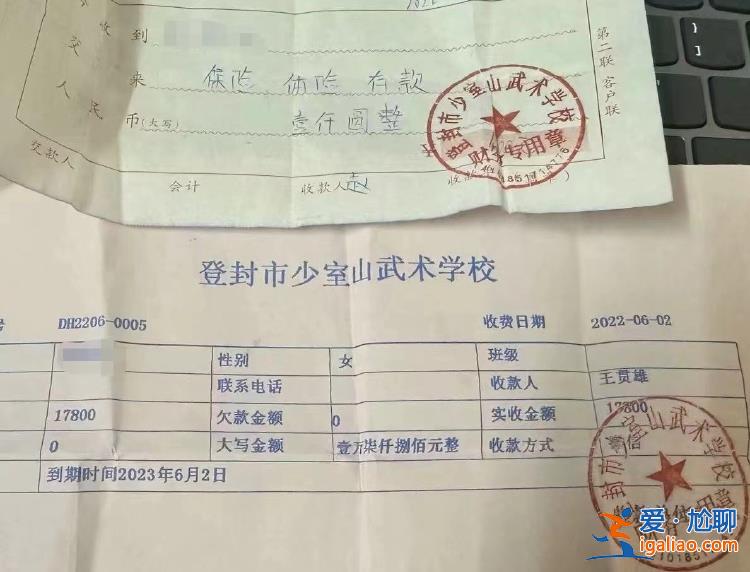 今收到
交来 保险 体检 存款
人民币(大写) 壹仟圆整
交款人 会计 收款人 收款
第二联 客户联
登封市少室山武术学校
财务专用章
登封市少室山武术学校
号 DH2206-0005 收费日期 2022-06-02
性别 女 班级
联系电话 收款人 王贯雄
17800 欠款金额 0 实收金额 17800
0 大写金额 壹万柒仟捌佰元整 收款方式
到期时间2023年6月2日
封市少室山武术学校
爱·尬聊
igaliao.com